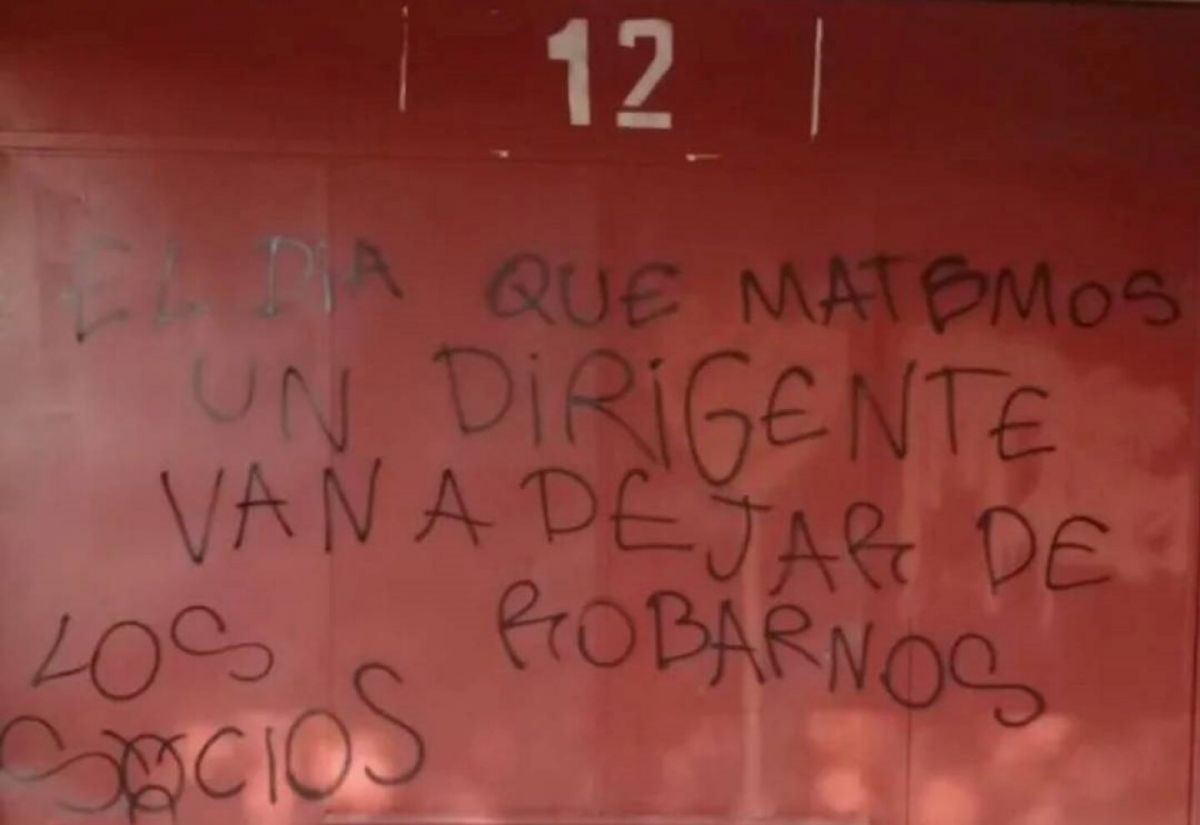 12
EL DIA QUE MATEMOS
UN DIRIGENTE
VAN A DEJAR DE
ROBARNOS
LOS
SOCIOS